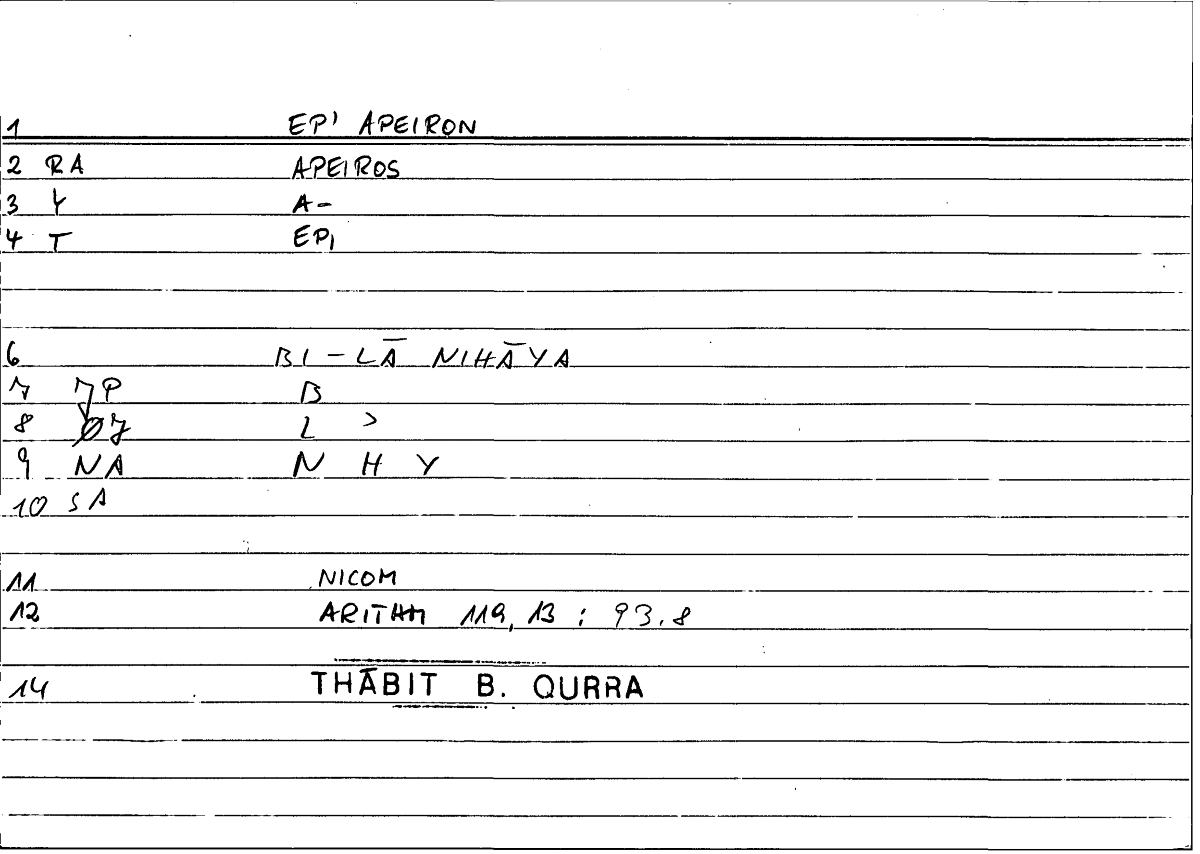 1 EP' APEIRON
2 RA APEIROS
3 Y A-
4 T EPI
6 BI-LĀ NIHĀYA
7 JP B
8 L ʾ
9 NA N H Y
10 SA
11 NICOM
12 ARITHM 119,13 : 93.8
14 THĀBIT B. QURRA